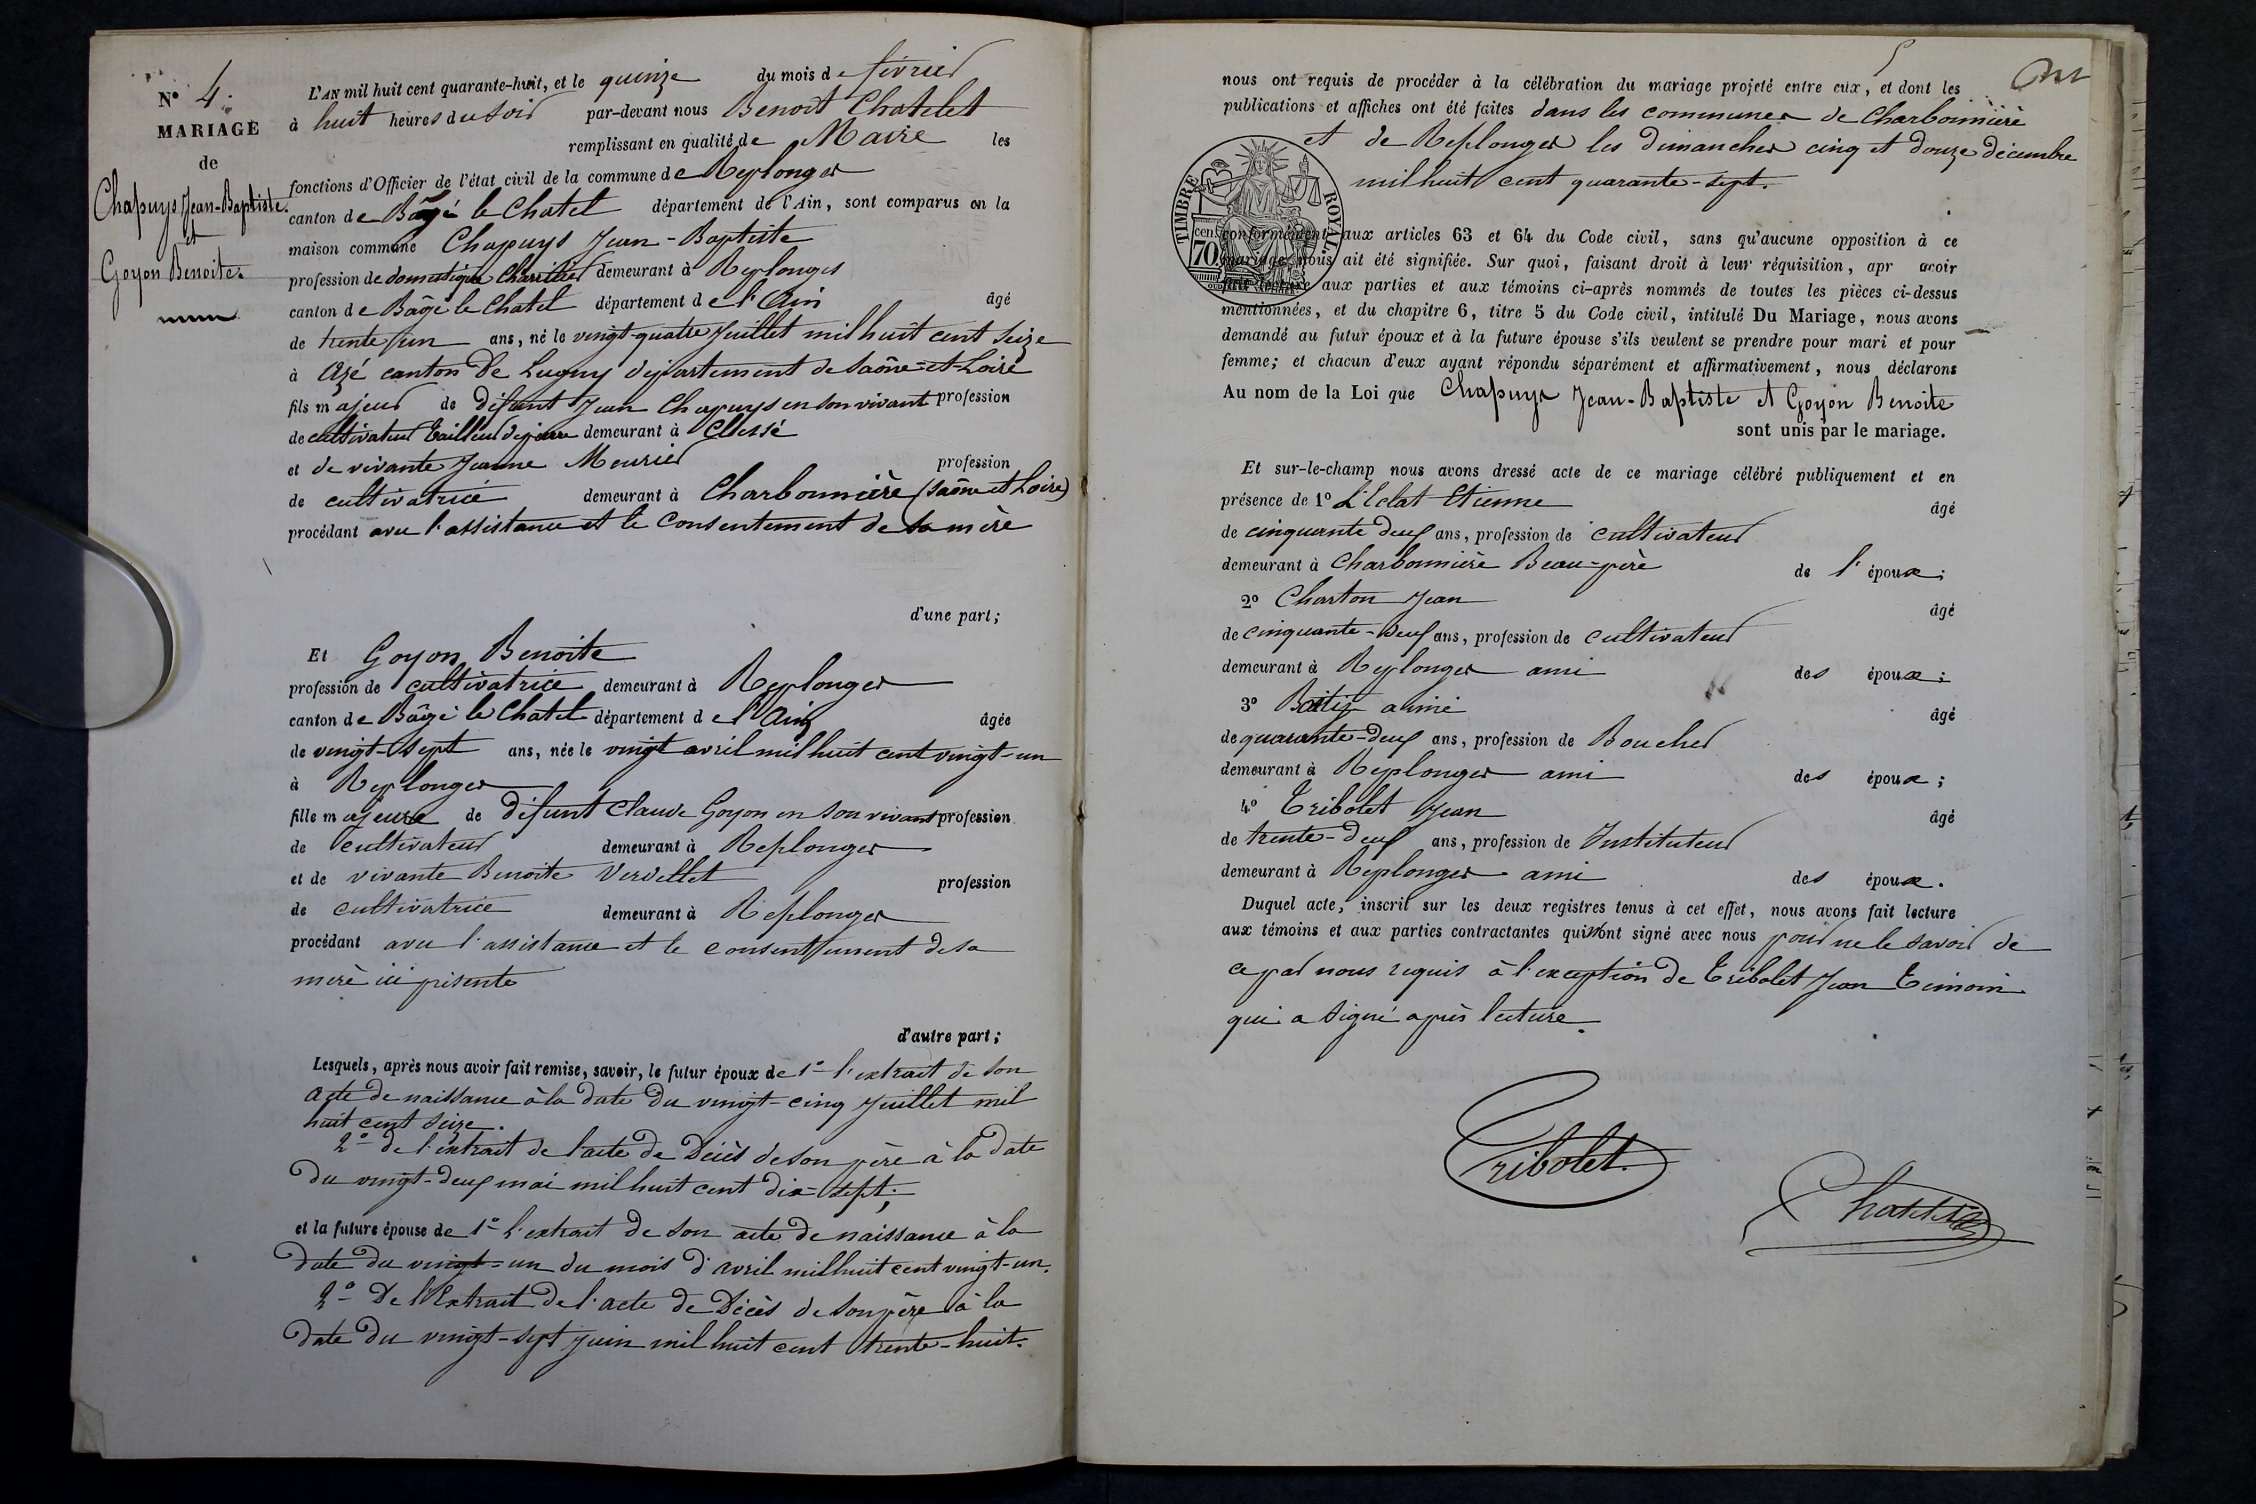 N° 4.
MARIAGE
de
Chapuys Jean-Baptiste.
et
Goyon Benoite.
L'AN mil huit cent quarante-huit, et le quinze du mois de février
à huit heures du soir par-devant nous Benoit Chatelet
remplissant en qualité de Maire les
fonctions d'Officier de l'état civil de la commune de Replonges
canton de Bâgé le Chatel département de l'Ain, sont comparus en la
maison commune Chapuys Jean-Baptiste
profession de domestique demeurant à Replonges
canton de Bâgé le Chatel département de l'Ain âgé
de trente un ans, né le vingt-quatre Juillet mil huit cent seize
à Azé canton de Lugny département de Saône-et-Loire
fils majeur de défunt Jean Chapuys en son vivant profession
de cultivateur tailleur de pierre demeurant à Clessé
et de vivante Jeanne Meurier profession
de cultivatrice demeurant à Charbonnière (Saône et Loire)
procédant avec l'assistance et le consentement de sa mère
d'une part;
Et Goyon Benoite
profession de cultivatrice demeurant à Replonges
canton de Bâgé le Chatel département de l'Ain âgée
de vingt-sept ans, née le vingt avril mil huit cent vingt-un
à Replonges
fille majeure de défunt Claude Goyon en son vivant profession
de cultivateur demeurant à Replonges
et de vivante Benoite Vervellet profession
de cultivatrice demeurant à Replonges
procédant avec l'assistance et le consentement de sa
mère ici présente
d'autre part;
Lesquels, après nous avoir fait remise, savoir, le futur époux de 1° l'extrait de son
acte de naissance à la date du vingt-cinq Juillet mil
huit cent seize.
2° de l'extrait de l'acte de Décès de son père à la date
du vingt-deux mai mil huit cent dix-sept;
et la future épouse de 1° l'extrait de son acte de naissance à la
date du vingt-un du mois d'avril mil huit cent vingt-un.
2° De l'Extrait de l'acte de Décès de son père à la
date du vingt-sept juin mil huit cent trente-huit.
nous ont requis de procéder à la célébration du mariage projeté entre eux, et dont les
publications et affiches ont été faites dans les communes de Charbonnière
et de Replonges les dimanches cinq et douze décembre
mil huit cent quarante-sept.
TIMBRE ROYAL
cen
70
conformément aux articles 63 et 64 du Code civil, sans qu'aucune opposition à ce
mariage nous ait été signifiée. Sur quoi, faisant droit à leur réquisition, apr avoir
fait lecture aux parties et aux témoins ci-après nommés de toutes les pièces ci-dessus
mentionnées, et du chapitre 6, titre 5 du Code civil, intitulé Du Mariage, nous avons
demandé au futur époux et à la future épouse s'ils veulent se prendre pour mari et pour
femme; et chacun d'eux ayant répondu séparément et affirmativement, nous déclarons
Au nom de la Loi que Chapuys Jean-Baptiste et Goyon Benoite
sont unis par le mariage.
Et sur-le-champ nous avons dressé acte de ce mariage célébré publiquement et en
présence de 1° L'Eclat Etienne âgé
de cinquante deux ans, profession de cultivateur
demeurant à Charbonnière Beau-père de l'époux;
2° Charton Jean âgé
de cinquante-deux ans, profession de cultivateur
demeurant à Replonges ami des époux;
3° aimé âgé
de quarante-deux ans, profession de Boucher
demeurant à Replonges ami des époux;
4° Tribolet Jean âgé
de trente-deux ans, profession de Instituteur
demeurant à Replonges ami des époux.
Duquel acte, inscrit sur les deux registres tenus à cet effet, nous avons fait lecture
aux témoins et aux parties contractantes qui n'ont signé avec nous pour ne le savoir de
ce par nous requis à l'exception de Tribolet Jean témoin
qui a signé après lecture.
Tribolet